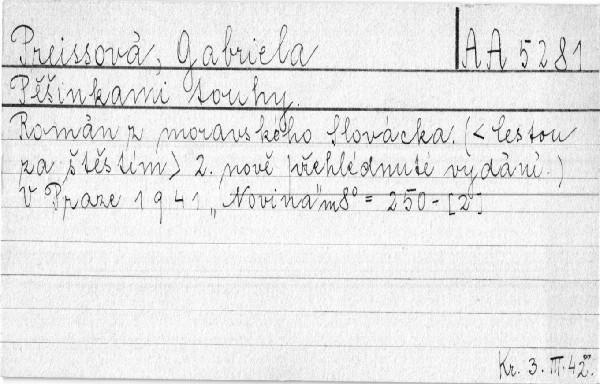 Preissová, Gabriela
AA 5281
Pěšinkami touhy.
Román z moravského Slovácka. (<Cestou
za štěstím> 2. nově přehlédnuté vydání.)
V Praze 1941 „Novina" m8° = 250 - [2]
Kr. 3. III. 42.